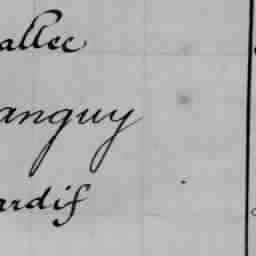 allec
anguy
ardif